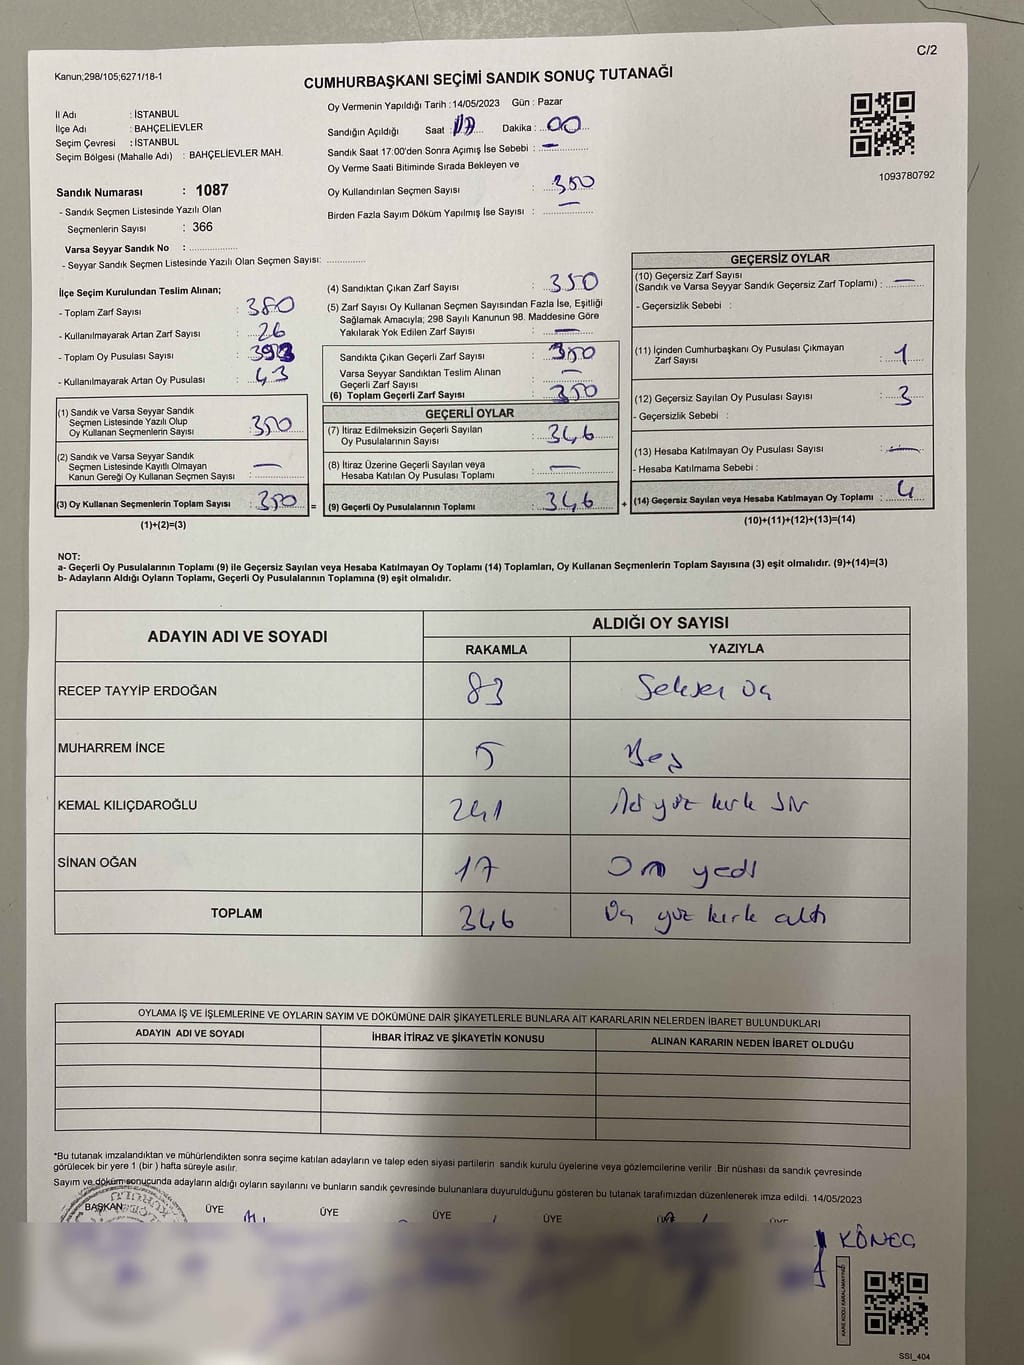 C/2
Kanun;298/105;6271/18-1
CUMHURBAŞKANI SEÇİMİ SANDIK SONUÇ TUTANAĞI
İl Adı : İSTANBUL
İlçe Adı : BAHÇELİEVLER
Seçim Çevresi : İSTANBUL
Seçim Bölgesi (Mahalle Adı) : BAHÇELİEVLER MAH.
Sandık Numarası : 1087
- Sandık Seçmen Listesinde Yazılı Olan
Seçmenlerin Sayısı : 366
Varsa Seyyar Sandık No : ................
- Seyyar Sandık Seçmen Listesinde Yazılı Olan Seçmen Sayısı: .............
Oy Vermenin Yapıldığı Tarih : 14/05/2023 Gün : Pazar
Sandığın Açıldığı Saat : 17 Dakika : 00
Sandık Saat 17:00'den Sonra Açımış İse Sebebi : —
Oy Verme Saati Bitiminde Sırada Bekleyen ve
Oy Kullandırılan Seçmen Sayısı : 350
Birden Fazla Sayım Döküm Yapılmış İse Sayısı : —
1093780792
İlçe Seçim Kurulundan Teslim Alınan;
- Toplam Zarf Sayısı : 380
- Kullanılmayarak Artan Zarf Sayısı : 26
- Toplam Oy Pusulası Sayısı : 393
- Kullanılmayarak Artan Oy Pusulası : 43
(1) Sandık ve Varsa Seyyar Sandık
Seçmen Listesinde Yazılı Olup
Oy Kullanan Seçmenlerin Sayısı : 350
(2) Sandık ve Varsa Seyyar Sandık
Seçmen Listesinde Kayıtlı Olmayan
Kanun Gereği Oy Kullanan Seçmen Sayısı : —
(3) Oy Kullanan Seçmenlerin Toplam Sayısı : 350 =
(1)+(2)=(3)
(4) Sandıktan Çıkan Zarf Sayısı : 350
(5) Zarf Sayısı Oy Kullanan Seçmen Sayısından Fazla İse, Eşitliği
Sağlamak Amacıyla; 298 Sayılı Kanunun 98. Maddesine Göre
Yakılarak Yok Edilen Zarf Sayısı : —
Sandıkta Çıkan Geçerli Zarf Sayısı : 350
Varsa Seyyar Sandıktan Teslim Alınan
Geçerli Zarf Sayısı : —
(6) Toplam Geçerli Zarf Sayısı : 350
GEÇERLİ OYLAR
(7) İtiraz Edilmeksizin Geçerli Sayılan
Oy Pusulalarının Sayısı : 346
(8) İtiraz Üzerine Geçerli Sayılan veya
Hesaba Katılan Oy Pusulası Toplamı : —
(9) Geçerli Oy Pusulalarının Toplamı : 346 +
GEÇERSİZ OYLAR
(10) Geçersiz Zarf Sayısı
(Sandık ve Varsa Seyyar Sandık Geçersiz Zarf Toplamı) : —
- Geçersizlik Sebebi :
(11) İçinden Cumhurbaşkanı Oy Pusulası Çıkmayan
Zarf Sayısı : 1
(12) Geçersiz Sayılan Oy Pusulası Sayısı : 3
- Geçersizlik Sebebi :
(13) Hesaba Katılmayan Oy Pusulası Sayısı : —
- Hesaba Katılmama Sebebi :
(14) Geçersiz Sayılan veya Hesaba Katılmayan Oy Toplamı : 4
(10)+(11)+(12)+(13)=(14)
NOT:
a- Geçerli Oy Pusulalarının Toplamı (9) ile Geçersiz Sayılan veya Hesaba Katılmayan Oy Toplamı (14) Toplamları, Oy Kullanan Seçmenlerin Toplam Sayısına (3) eşit olmalıdır. (9)+(14)=(3)
b- Adayların Aldığı Oyların Toplamı, Geçerli Oy Pusulalarının Toplamına (9) eşit olmalıdır.
ADAYIN ADI VE SOYADI ALDIĞI OY SAYISI
RAKAMLA YAZIYLA
RECEP TAYYİP ERDOĞAN 83 Seksen üç
MUHARREM İNCE 5 Beş
KEMAL KILIÇDAROĞLU 241 İki yüz kırk bir
SİNAN OĞAN 17 On yedi
TOPLAM 346 Üç yüz kırk altı
OYLAMA İŞ VE İŞLEMLERİNE VE OYLARIN SAYIM VE DÖKÜMÜNE DAİR ŞİKAYETLERLE BUNLARA AİT KARARLARIN NELERDEN İBARET BULUNDUKLARI
ADAYIN ADI VE SOYADI İHBAR İTİRAZ VE ŞİKAYETİN KONUSU ALINAN KARARIN NEDEN İBARET OLDUĞU
*Bu tutanak imzalandıktan ve mühürlendikten sonra seçime katılan adayların ve talep eden siyasi partilerin sandık kurulu üyelerine veya gözlemcilerine verilir. Bir nüshası da sandık çevresinde
görülecek bir yere 1 (bir ) hafta süreyle asılır.
Sayım ve döküm sonucunda adayların aldığı oyların sayılarını ve bunların sandık çevresinde bulunanlara duyurulduğunu gösteren bu tutanak tarafımızdan düzenlenerek imza edildi. 14/05/2023
BAŞKAN ÜYE ÜYE ÜYE ÜYE ÜYE ÜYE
KARE KODU KARALAMAYINIZ
SSI_404